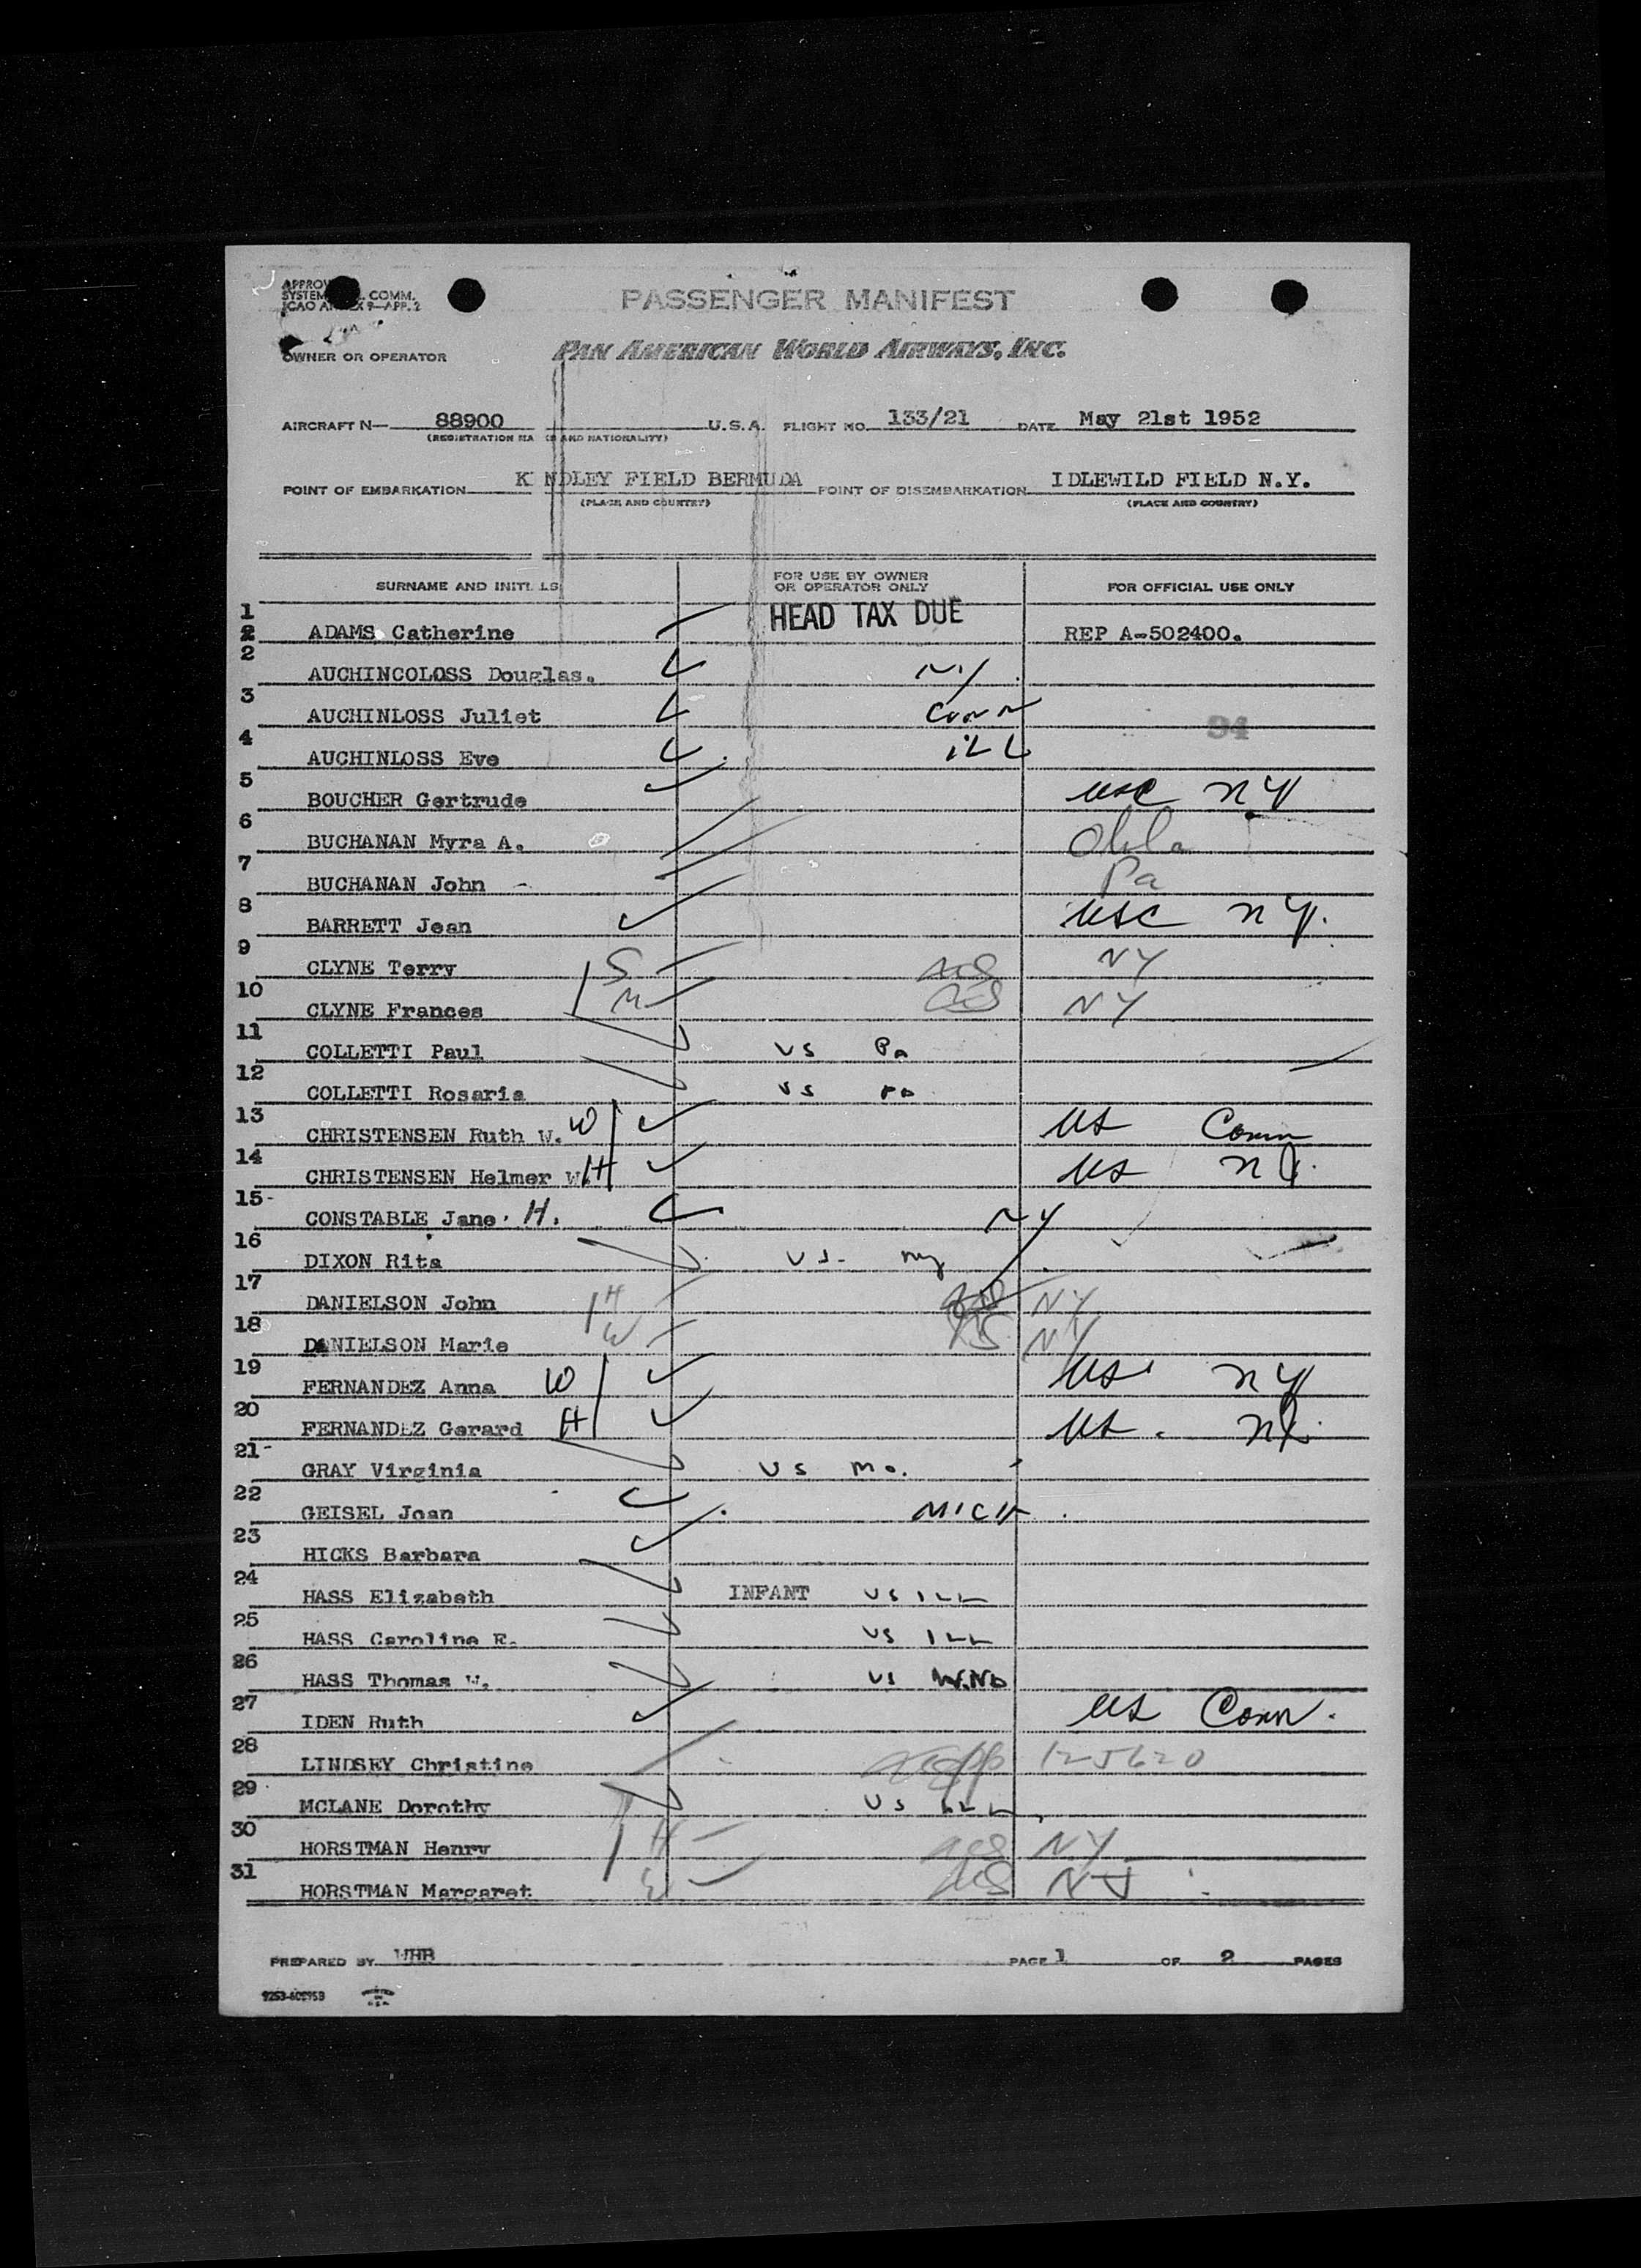 PASSENGER MANIFEST
SYSTEM COMM.
ICAO ANNEX 9—APP. 2
OWNER OR OPERATOR PAN AMERICAN WORLD AIRWAYS, INC.
AIRCRAFT N— 88900 U.S.A. FLIGHT NO. 133/21 DATE May 21st 1952
(REGISTRATION MA AND NATIONALITY)
POINT OF EMBARKATION K NDLEY FIELD BERMUDA POINT OF DISEMBARKATION IDLEWILD FIELD N.Y.
(PLACE AND COUNTRY) (PLACE AND COUNTRY)
SURNAME AND INITI LS FOR USE BY OWNER OR OPERATOR ONLY FOR OFFICIAL USE ONLY
1 HEAD TAX DUE
2 ADAMS Catherine REP A-502400.
2 AUCHINCOLOSS Douglas. NY
3 AUCHINLOSS Juliet CONN
94
4 AUCHINLOSS Eve ILL
5 BOUCHER Gertrude USC NY
6 BUCHANAN Myra A.
7 BUCHANAN John - Pa
8 BARRETT Jean USC NY.
9 CLYNE Terry S NY
10 CLYNE Frances M NY
11 COLLETTI Paul US Pa
12 COLLETTI Rosaria US Pa
13 CHRISTENSEN Ruth W. W US Conn
14 CHRISTENSEN Helmer W H US
15- CONSTABLE Jane H. NY
16 DIXON Rita US- NY
17 DANIELSON John H NY
18 DANIELSON Marie W NY
19 FERNANDEZ Anna W US NY
20 FERNANDEZ Gerard H US.
21- GRAY Virginia US Mo.
22 GEISEL Joan MICH
23 HICKS Barbara
24 HASS Elizabeth INFANT US ILL
25 HASS Caroline R. US ILL
26 HASS Thomas W. US
27 IDEN Ruth US Conn.
28 LINDSEY Christine 125620
29 MCLANE Dorothy US ILL
30 HORSTMAN Henry H NY
31 HORSTMAN Margaret W NJ
PREPARED BY WHB PAGE 1 OF 2 PAGES
PRINTED IN U.S.A.